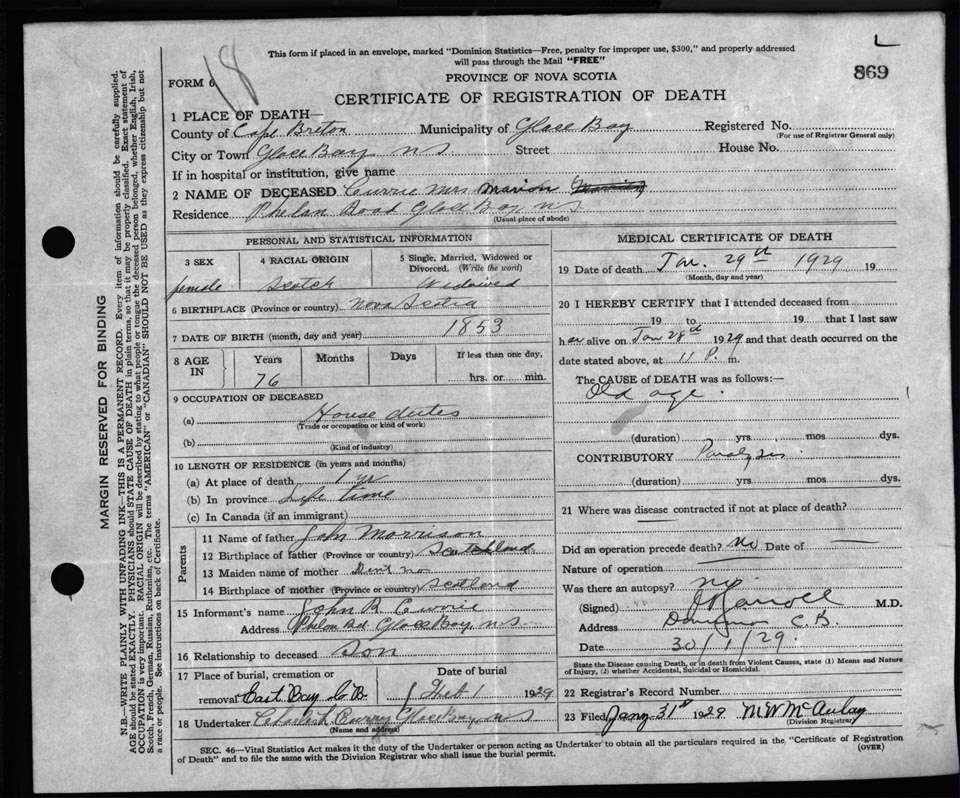 This form if placed in an envelope, marked "Dominion Statistics—Free, penalty for improper use, $300," and properly addressed
will pass through the Mail "FREE"
L
18
869
FORM 6
PROVINCE OF NOVA SCOTIA
CERTIFICATE OF REGISTRATION OF DEATH
1 PLACE OF DEATH—
County of Cape Breton Municipality of Glace Bay Registered No.
(For use of Registrar General only)
City or Town Glace Bay N S Street House No.
If in hospital or institution, give name
2 NAME OF DECEASED Currie Mrs Marion
Residence Phelan Road Glace Bay N S
(Usual place of abode)
PERSONAL AND STATISTICAL INFORMATION
3 SEX 4 RACIAL ORIGIN 5 Single, Married, Widowed or Divorced. (Write the word)
female Scotch Widowed
6 BIRTHPLACE (Province or country) Nova Scotia
7 DATE OF BIRTH (month, day and year) 1853
8 AGE IN Years Months Days If less than one day,
76 hrs. or min.
9 OCCUPATION OF DECEASED
(a) House duties
(Trade or occupation or kind of work)
(b)
(Kind of industry)
10 LENGTH OF RESIDENCE (in years and months)
(a) At place of death 1 yr
(b) In province Life time
(c) In Canada (if an immigrant)
Parents
11 Name of father John Morrison
12 Birthplace of father (Province or country) Scotland
13 Maiden name of mother Dont no
14 Birthplace of mother (Province or country) Scotland
15 Informant's name John R Currie
Address Phelan Rd Glace Bay N.S.
16 Relationship to deceased Son
17 Place of burial, cremation or Date of burial
removal East Bay C.B. Feb 1 1929
18 Undertaker Curry Glace Bay N S
(Name and address)
MEDICAL CERTIFICATE OF DEATH
19 Date of death Jan. 29th 1929 19
(Month, day and year)
20 I HEREBY CERTIFY that I attended deceased from
19 to 19 that I last saw
her alive on Jan 28th 1929 and that death occurred on the
date stated above, at 11 P. m.
The CAUSE OF DEATH was as follows:—
Old age.
(duration) yrs. mos dys.
CONTRIBUTORY Paralysis
(duration) yrs. mos dys.
21 Where was disease contracted if not at place of death?
Did an operation precede death? No Date of
Nature of operation
Was there an autopsy? No
(Signed) M.D.
Address Dominion C.B.
Date 30/1/29.
State the Disease causing Death, or in death from Violent Causes, state (1) Means and Nature
of Injury, (2) whether Accidental, Suicidal or Homicidal.
22 Registrar's Record Number
23 Filed Jany 31st 1929 M W McAulay
(Division Registrar)
SEC. 46—Vital Statistics Act makes it the duty of the Undertaker or person acting as Undertaker to obtain all the particulars required in the "Certificate of Registration
of Death" and to file the same with the Division Registrar who shall issue the burial permit.
(OVER)
MARGIN RESERVED FOR BINDING
N.B.—WRITE PLAINLY WITH UNFADING INK—THIS IS A PERMANENT RECORD. Every item of information should be carefully supplied.
AGE should be stated EXACTLY. PHYSICIANS should STATE CAUSE OF DEATH in plain terms, so that it may be properly classified. Exact statement of
OCCUPATION is very important. RACIAL ORIGIN will be described by stating to what people or tongue the deceased person belonged, whether English, Irish,
Scotch, French, German, Russian, Ruthenian, etc. The terms "AMERICAN" or "CANADIAN" SHOULD NOT BE USED as they express citizenship but not
a race or people. See instructions on back of Certificate.